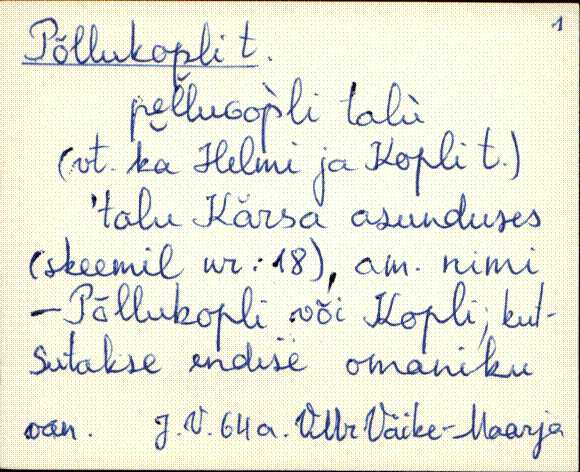 1
Põllukopli t.
pĕllŭcòpli talù
(vt. ka Helmi ja Kopli t.)
'talu Kărsa asunduses
(skeemil nr: 18), am. nimi
– Põllukopli või Kopli; kut-
sutakse endise omaniku
J. V. 64 a. VMr Väike-Maarja